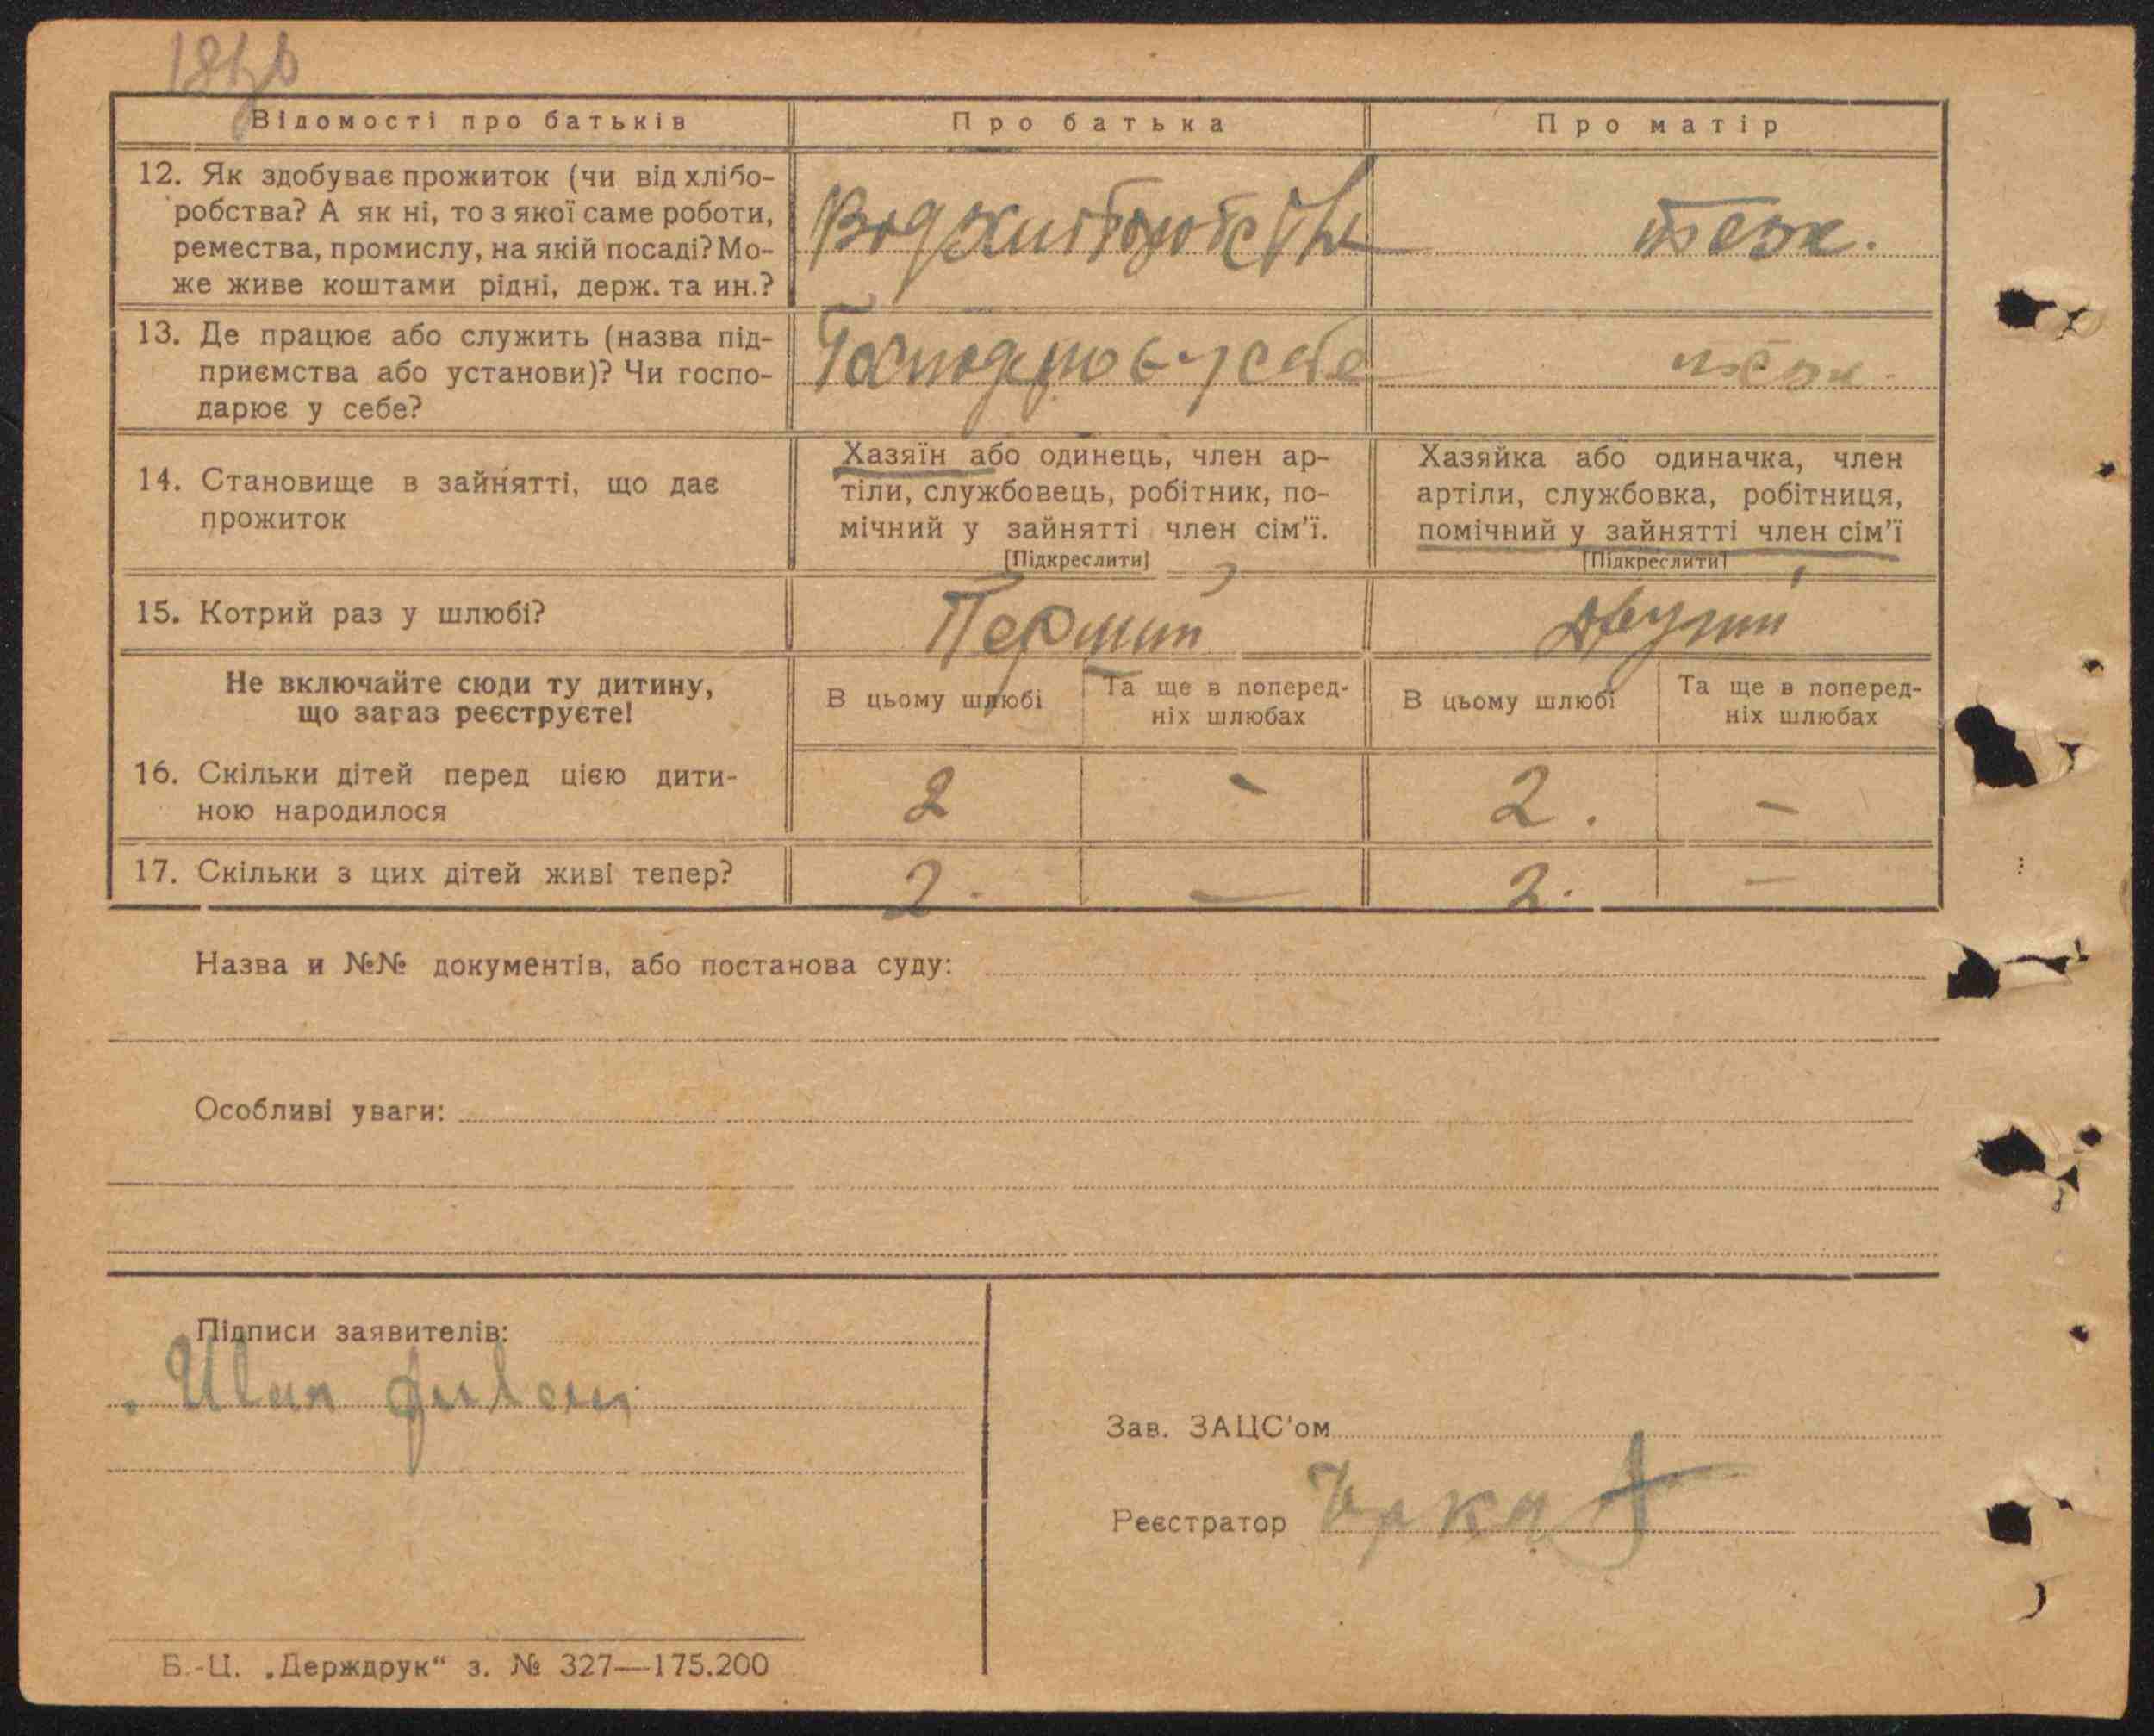 Відомості про батьків
Про батька
Про матір
12. Як здобуває прожиток (чи від хлібо-
робства? А як ні, то з якої саме роботи,
ремества, промислу, на якій посаді? Мо-
же живе коштами рідні, держ. та ин.?
теж.
13. Де працює або служить (назва під-
приємства або установи)? Чи госпо-
дарює у себе?
Господарює у себе
теж.
14. Становище в зайнятті, що дає
прожиток
Хазяїн або одинець, член ар-
тіли, службовець, робітник, по-
мічний у зайнятті член сім'ї.
[Підкреслити]
Хазяйка або одиначка, член
артіли, службовка, робітниця,
помічний у зайнятті член сім'ї
[Підкреслити]
15. Котрий раз у шлюбі?
Перший
Не включайте сюди ту дитину,
що загаз реєструєте!
В цьому шлюбі
Та ще в поперед-
ніх шлюбах
В цьому шлюбі
Та ще в поперед-
ніх шлюбах
16. Скільки дітей перед цією дити-
ною народилося
2 - 2. -
17. Скільки з цих дітей живі тепер?
2. — 2. —
Назва и №№ документів, або постанова суду:
Особливі уваги:
Підписи заявителів:
Зав. ЗАЦС'ом
Реєстратор
Б.-Ц. „Держдрук“ з. № 327—175.200